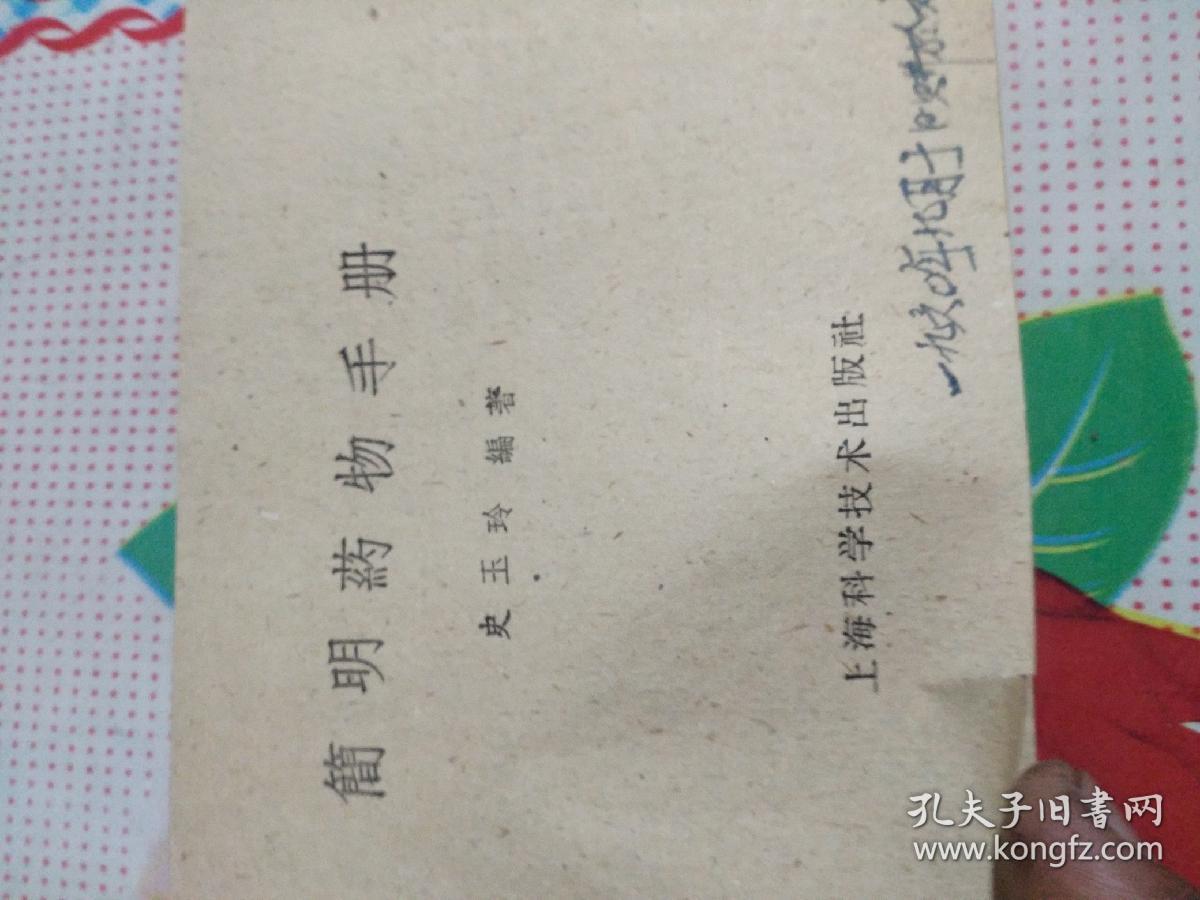 簡明葯物手册
史玉玲編著
上海科学技术出版社
一九六0年九月于
孔夫子旧书网
www.kongfz.com